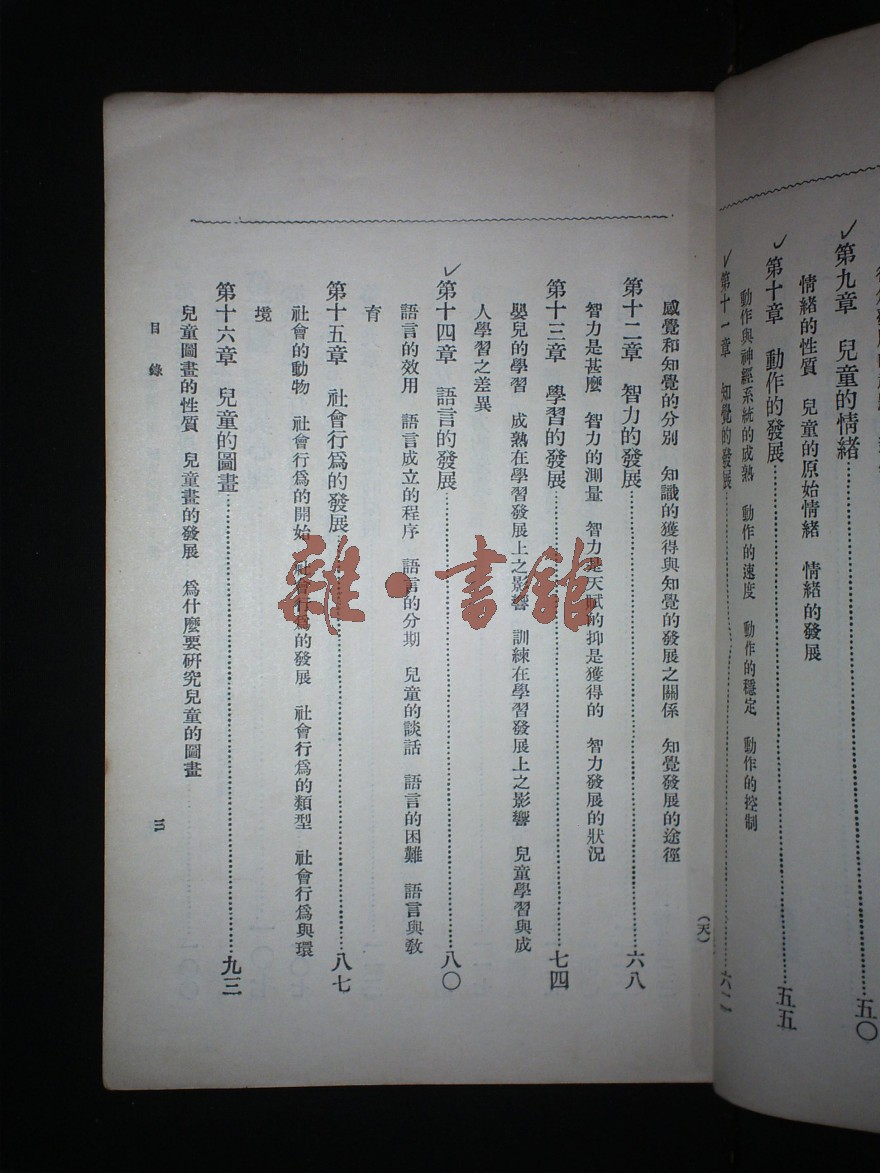 第九章　兒童的情緒……五〇
情緒的性質　兒童的原始情緒　情緒的發展
第十章　動作的發展……五五
動作與神經系統的成熟　動作的速度　動作的穩定　動作的控制
第十一章　知覺的發展……六二
(天)
感覺和知覺的分别　知識的獲得與知覺的發展之關係　知覺發展的途徑
第十二章　智力的發展……六八
智力是甚麼　智力的測量　智力是天賦的抑是獲得的　智力發展的狀況
第十三章　學習的發展……七四
嬰兒的學習　成熟在學習發展上之影響　訓練在學習發展上之影響　兒童學習與成
人學習之差異
第十四章　語言的發展……八〇
語言的效用　語言成立的程序　語言的分期　兒童的談話　語言的困難　語言與敎
育
第十五章　社會行爲的發展……八七
社會的動物　社會行爲的開始　社會行爲的發展　社會行爲的類型　社會行爲與環
境
第十六章　兒童的圖畫……九三
兒童圖畫的性質　兒童畫的發展　爲什麼要研究兒童的圖畫
目錄
三
雜·書館